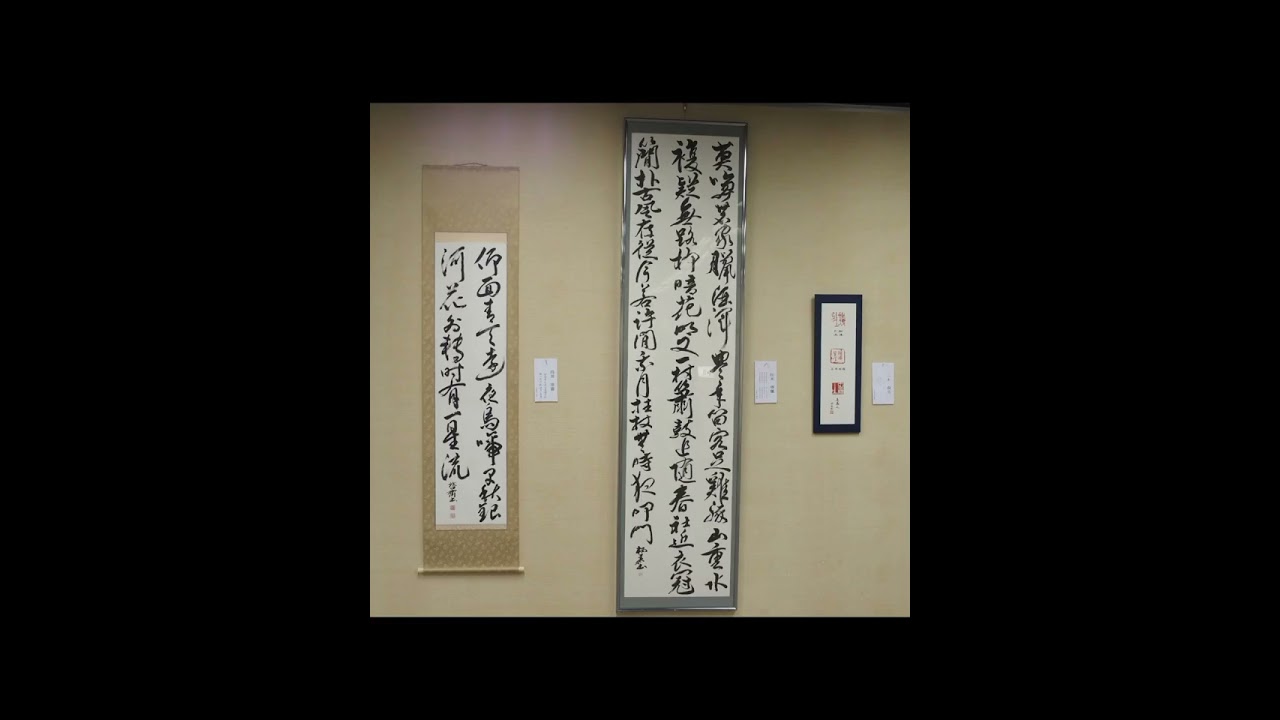 仰面青天遠夜烏啼早秋銀
河花外轉時有一星流
莫嗤農家臘酒渾豊年留客足雞豚山重水
複疑無路柳暗花明又一村簫鼓追随春社近衣冠
簡朴古風存從今若許閒乗月拄杖無時夜叩門